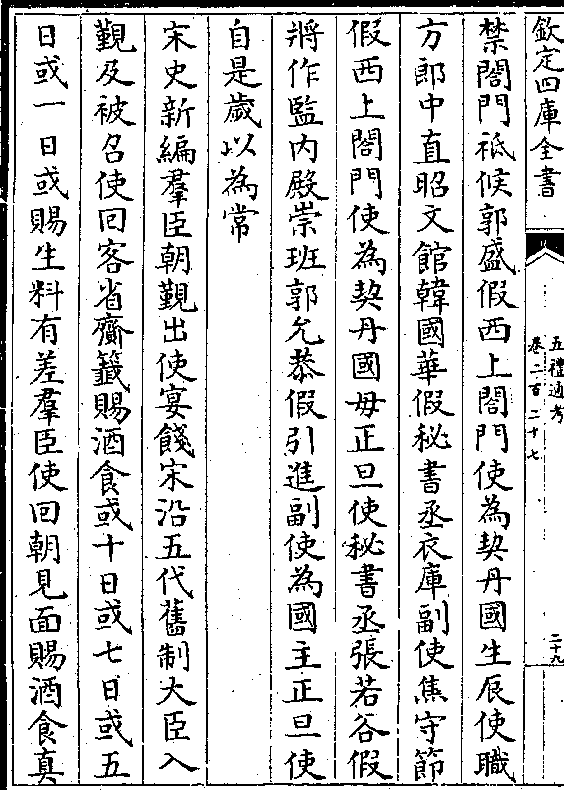 欽定四庫全書
五禮通考
卷二百二十七
二十九
禁閤門祗候郭盛假西上閤門使為契丹國生辰使職
方郎中直昭文館韓國華假秘書丞衣庫副使焦守節
假西上閤門使為契丹國母正旦使秘書丞張若谷假
將作監内殿崇班郭允恭假引進副使為國主正旦使
自是歲以為常
宋史新編羣臣朝覲出使宴餞宋沿五代舊制大臣入
覲及被召使回客省齎籤賜酒食或十日或七日或五
日或一日或賜生料有差羣臣使回朝見面賜酒食真